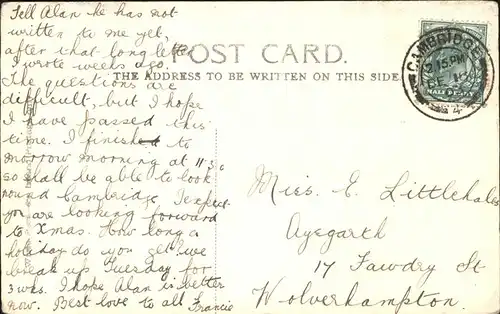 Tell Alan he has not
written to me yet,
after that long letter
I wrote weeks ago.
The questions are
difficult, but I hope
I have passed this
time. I finished to
morrow morning at 11.30
so shall be able to look
round Cambridge. I expect
you are looking forward
to Xmas. How long a
holiday do you get? we
break up Tuesday for
3 wks. I hope Alan is better
now. Best love to all Francie
POST CARD.
THE ADDRESS TO BE WRITTEN ON THIS SIDE
CAMBRIDGE
15 PM
HALF PENNY
Miss. E. Littlehales
Aysgarth
17 Fawdry St
Wolverhampton.